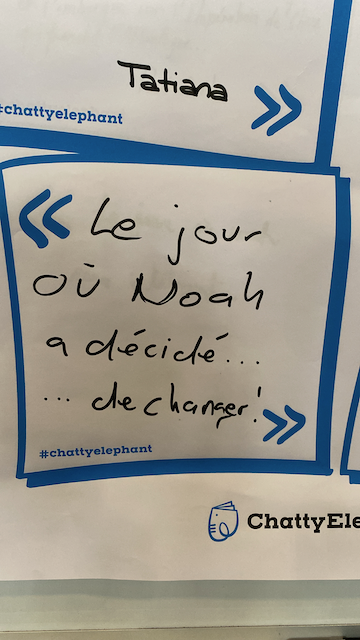 Tatiana »
#chattyelephant
« Le jour
où Noah
a décidé...
... de changer! »
#chattyelephant